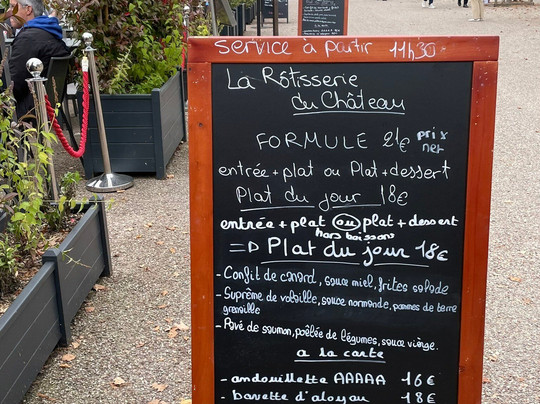 service à partir 11h30
La Rôtisserie
du Château
FORMULE 21€ prix
net
entrée + plat ou Plat + dessert
Plat du jour 18€
entrée + plat ou plat + dessert
hors boissons
=D Plat du jour 18€
- Confit de canard, sauce miel, frites salade
- Suprême de volaille, sauce normande, pommes de terre
grenaille
- Pavé de saumon, poêlée de légumes, sauce vierge.
a la carte
- andouillette AAAAA 16€
- bavette d'aloyau 18€